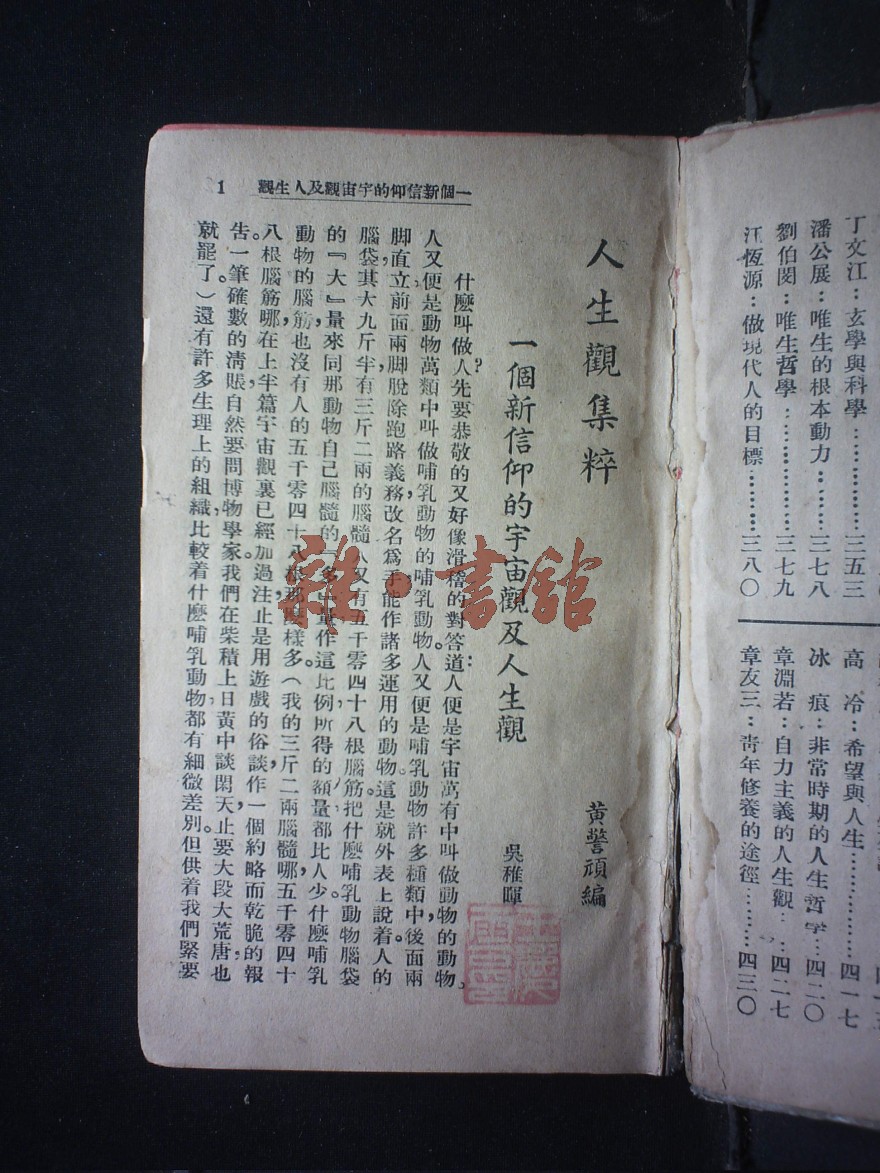 丁文江：玄學與科學……………三五三
潘公展：唯生的根本動力………三七八
劉伯閔：唯生哲學………………三七九
江恆源：做現代人的目標………三八〇
高　冷：希望與人生……………四一七
冰　痕：非常時期的人生哲學…四二〇
章淵若：自力主義的人生觀…四二七
章友三：青年修養的途徑………四三〇
一個新信仰的宇宙觀及人生觀　1
人生觀集粹
黄警頑編
一個新信仰的宇宙觀及人生觀
吳稚暉
什麼叫做人？先要恭敬的又好像滑稽的對答道：人便是宇宙萬有中叫做動物的動物。
人又便是動物萬類中叫做哺乳動物的哺乳動物。人又便是哺乳動物許多種類中，後面兩
脚直立，前面兩脚脫除跑路義務，改名爲手，能作諸多運用的動物。這是就外表上說着。人的
腦袋，其大九斤半，有三斤二兩的腦髓，又有五千零四十八根腦筋。把什麼哺乳動物腦袋
的『大』量，來同那動物自己腦髓的『多』量作這比例，所得的額量都比人少。什麼哺乳
動物的腦筋，也沒有人的五千零四十八根那麼樣多（我的三斤二兩腦髓哪，五千零四十
八根腦筋哪，在上半篇宇宙觀裏已經加過注，止是用遊戲的俗談作一個約略而乾脆的報
告。一筆確數的清賬，自然要問博物學家。我們在柴積上日黃中談閑天，止要大段大荒唐，也
就罷了。）還有許多生理上的組織，比較着什麼哺乳動物，都有細微差別。但供着我們緊要
雜·書館